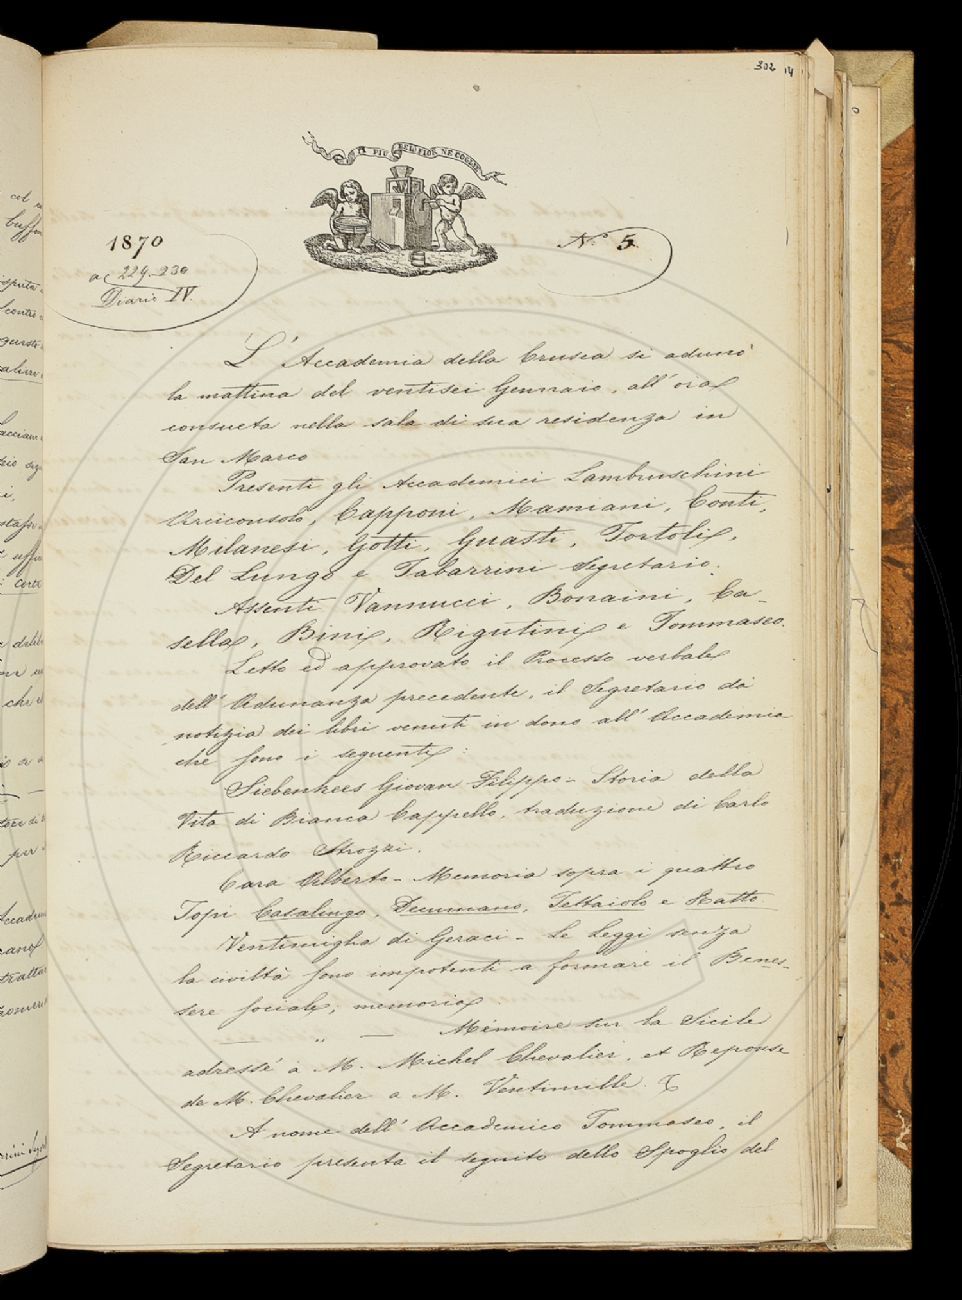 302 14
IL PIÙ BEL FIOR NE COGLIE
1870
a c 229-230
Diario IV.
N.° 5.
L'Accademia della Crusca si adunò
la mattina del ventisei Gennaio, all'ora
consueta nella sala di sua residenza in
San Marco
Presenti gli Accademici Lambruschini
Arciconsolo, Capponi, Mamiani, Conti,
Milanesi, Gotti, Guasti, Tortoli,
Del Lungo e Tabarrini Segretario.
Assenti Vannucci, Bonaini, Ca-
sella, Bini, Rigutini e Tommaseo.
Letto ed approvato il Processo verbale
dell'Adunanza precedente, il Segretario dà
notizia dei libri venuti in dono all'Accademia
che sono i seguenti:
Siebenkees Giovan Filippo - Storia della
Vita di Bianca Cappello, traduzione di Carlo
Riccardo Strozzi.
Cara Alberto - Memoria sopra i quattro
Topi Casalingo, Decumano, Tettaiolo e Ratto.
Ventimiglia di Geraci - Le Leggi senza
la civiltà sono impotenti a formare il Benes-
sere sociale; memoria
— " — Mémoire sur la Sicile
adressé à M. Michel Chevalier, et Reponse
de M. Chevalier a M. Ventimille.
A nome dell'Accademico Tommaseo, il
Segretario presenta il seguito dello Spoglio del